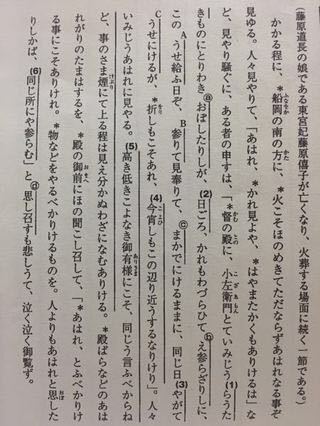 (藤原道長の娘である東宮妃藤原嬉子が亡くなり、火葬する場面に続く一節である。)
かかる程に、*船岡の南の方に、*火こそほのめきてただならずあはれなる事ぞ
見ゆる。人々見やりて、「あはれ、*かれ見よや、*はやまたかくもありけるは」な
ど、見やり騒ぐに、ある者の申すは、「*督の殿に、小左衛門とていみじう(1)らうた
きものにとりわきⓐおぼしたりしが、(2)日ごろ、かれもわづらひてⓑえ参らざりしに、
この A うせ給ふ日ぞ、 B 参りて見奉りて、ⓒまかでにけるままに、同じ日(3)やがて
C うせにけるが、*折しもこそあれ、(4)今宵しもこの辺り近うするなりけり」。人々
いみじうあはれに見やる。(5)高き低きこよなき御有様にこそ、同じう言ふべからね
ど、事のさま煙にて上る程は見え分かぬわざになむありける。*殿ばらなどのあは
れがりのたまはするを、*殿の御前にほの聞こし召して、「*あはれ、とふべかりけ
る事にこそありけれ。*物などをやるべかりけるものを。人よりもあはれと思した
りしかば、(6)同じ所にや参らむ」とⓓ思し召すも悲しうて、泣く泣く御覧ず。
けぶり
おまへ
おぼ